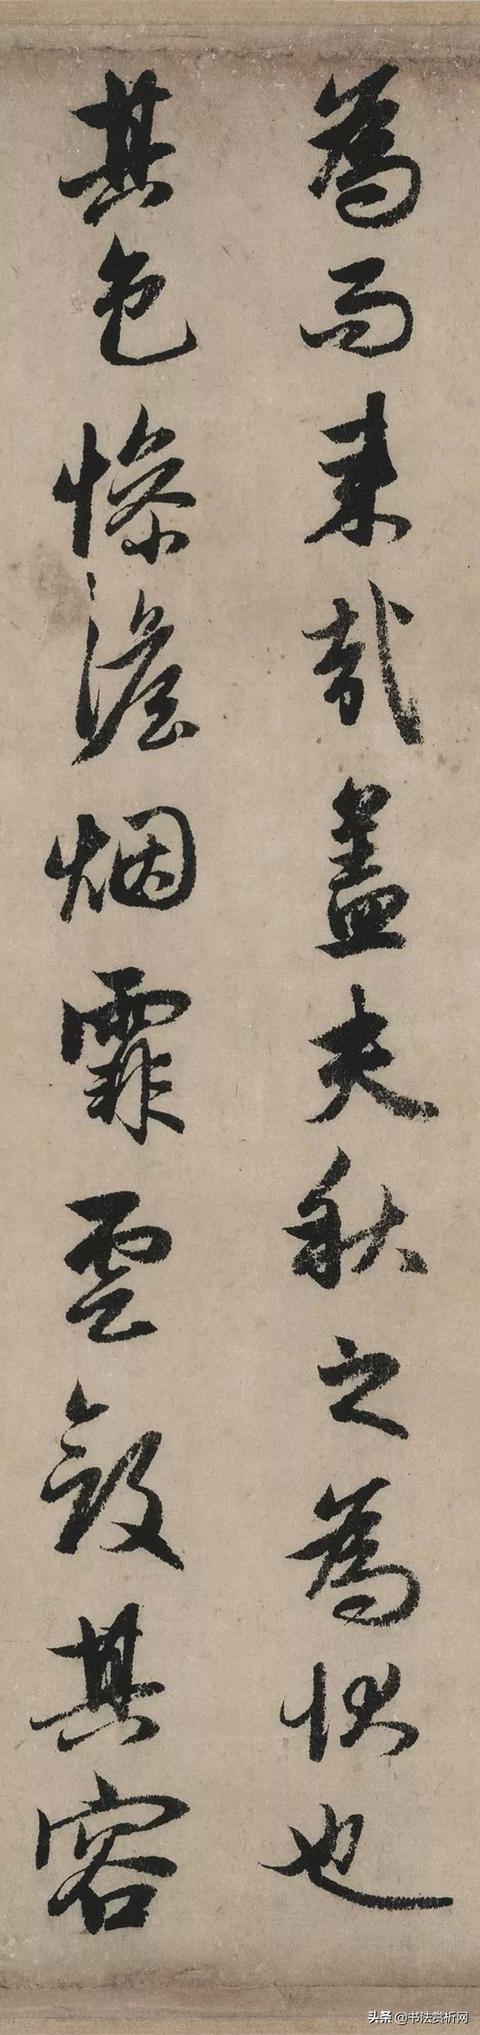 為而來哉蓋夫秋之為狀也
其色慘澹烟霏雲斂其容
头条 @书法赏析网